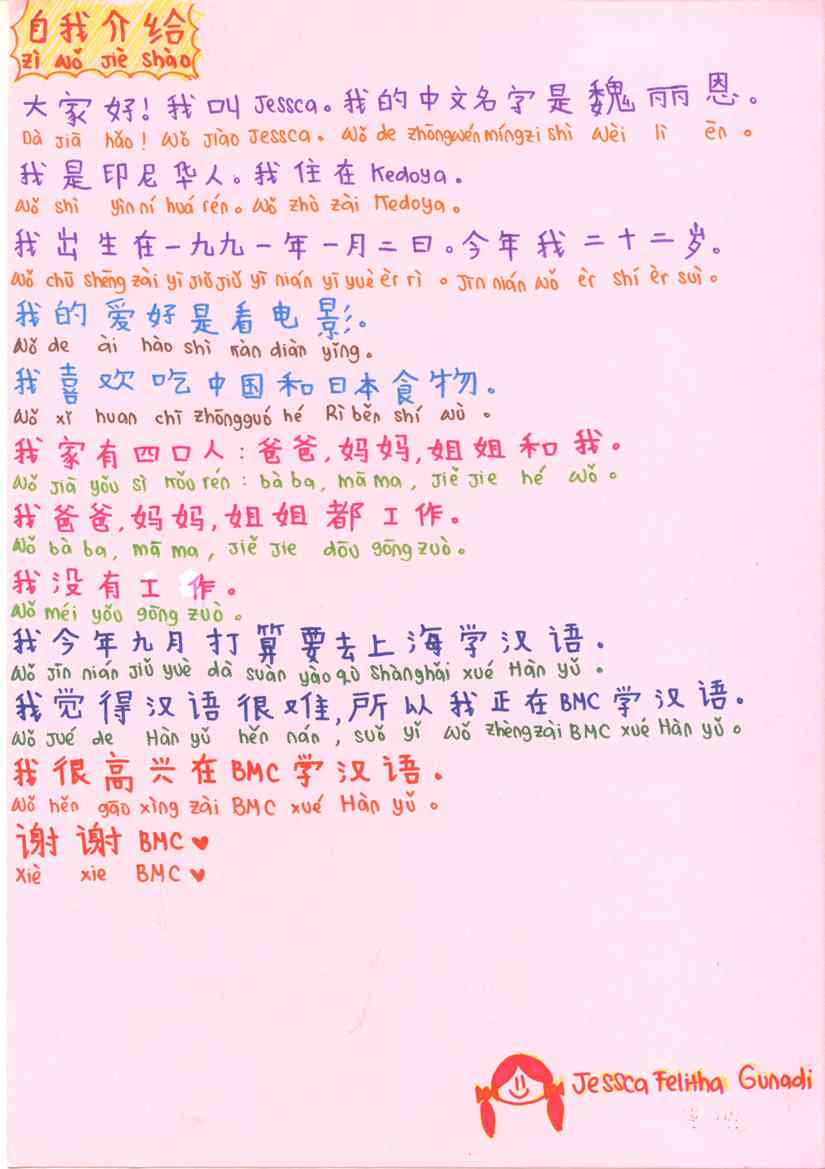 自我介绍
zì wǒ jiè shào
大家好！我叫Jessca。我的中文名字是魏丽恩。
Dà jiā hǎo! Wǒ jiào Jessca。Wǒ de zhōngwén míngzi shì Wèi lì ēn。
我是印尼华人。我住在Kedoya。
Wǒ shì yìn ní huá rén。Wǒ zhù zài Kedoya。
我出生在一九九一年一月二日。今年我二十二岁。
Wǒ chū shēng zài yī jiǔ jiǔ yī nián yī yuè èr rì。Jīn nián wǒ èr shí èr suì。
我的爱好是看电影。
Wǒ de ài hào shì kàn diàn yǐng。
我喜欢吃中国和日本食物。
Wǒ xǐ huan chī zhōngguó hé Rì běn shí wù。
我家有四口人：爸爸,妈妈,姐姐和我。
Wǒ jiā yǒu sì kǒu rén: bà ba, mā ma, jiě jie hé wǒ。
我爸爸,妈妈,姐姐都工作。
Wǒ bà ba, mā ma, jiě jie dōu gōng zuò。
我没有工作。
Wǒ méi yǒu gōng zuò。
我今年九月打算要去上海学汉语。
Wǒ jīn nián jiǔ yuè dǎ suàn yào qù Shànghǎi xué Hàn yǔ。
我觉得汉语很难,所以我正在BMC学汉语。
Wǒ jué de Hàn yǔ hěn nán, suǒ yǐ wǒ zhèngzài BMC xué Hàn yǔ。
我很高兴在BMC学汉语。
Wǒ hěn gāo xìng zài BMC xué Hàn yǔ。
谢谢BMC♥
Xiè xie BMC♥
Jessca Felitha Gunadi